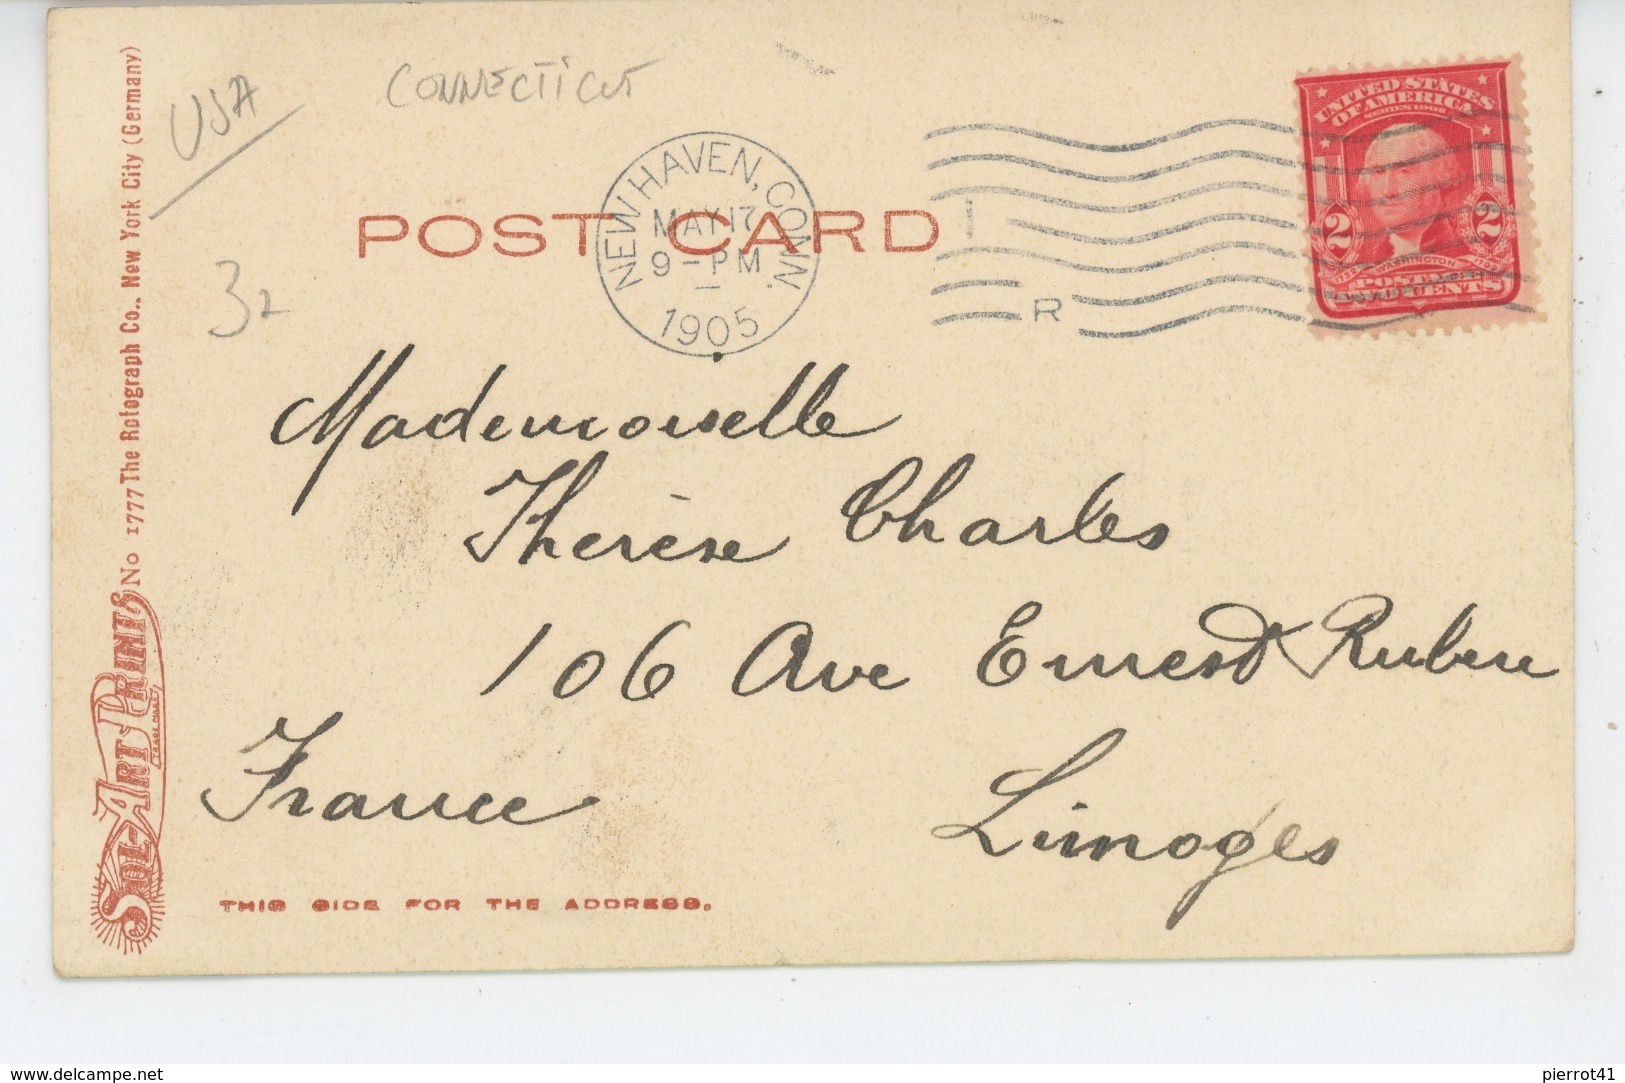 USA
CONNECTICUT
32
POST CARD
NEW HAVEN, CONN.
MAY 17
9 - PM
1905
R
UNITED STATES
OF AMERICA
SERIES 1902
2 2
1732 WASHINGTON 1799
POSTAGE
TWO CENTS
Mademoiselle
Thérèse Charles
106 Ave Ernest Ruben
France
Limoges
THIS SIDE FOR THE ADDRESS.
SOL-ART PRINTS
TRADE MARK
No 1777 The Rotograph Co., New York City (Germany)
www.delcampe.net
pierrot41